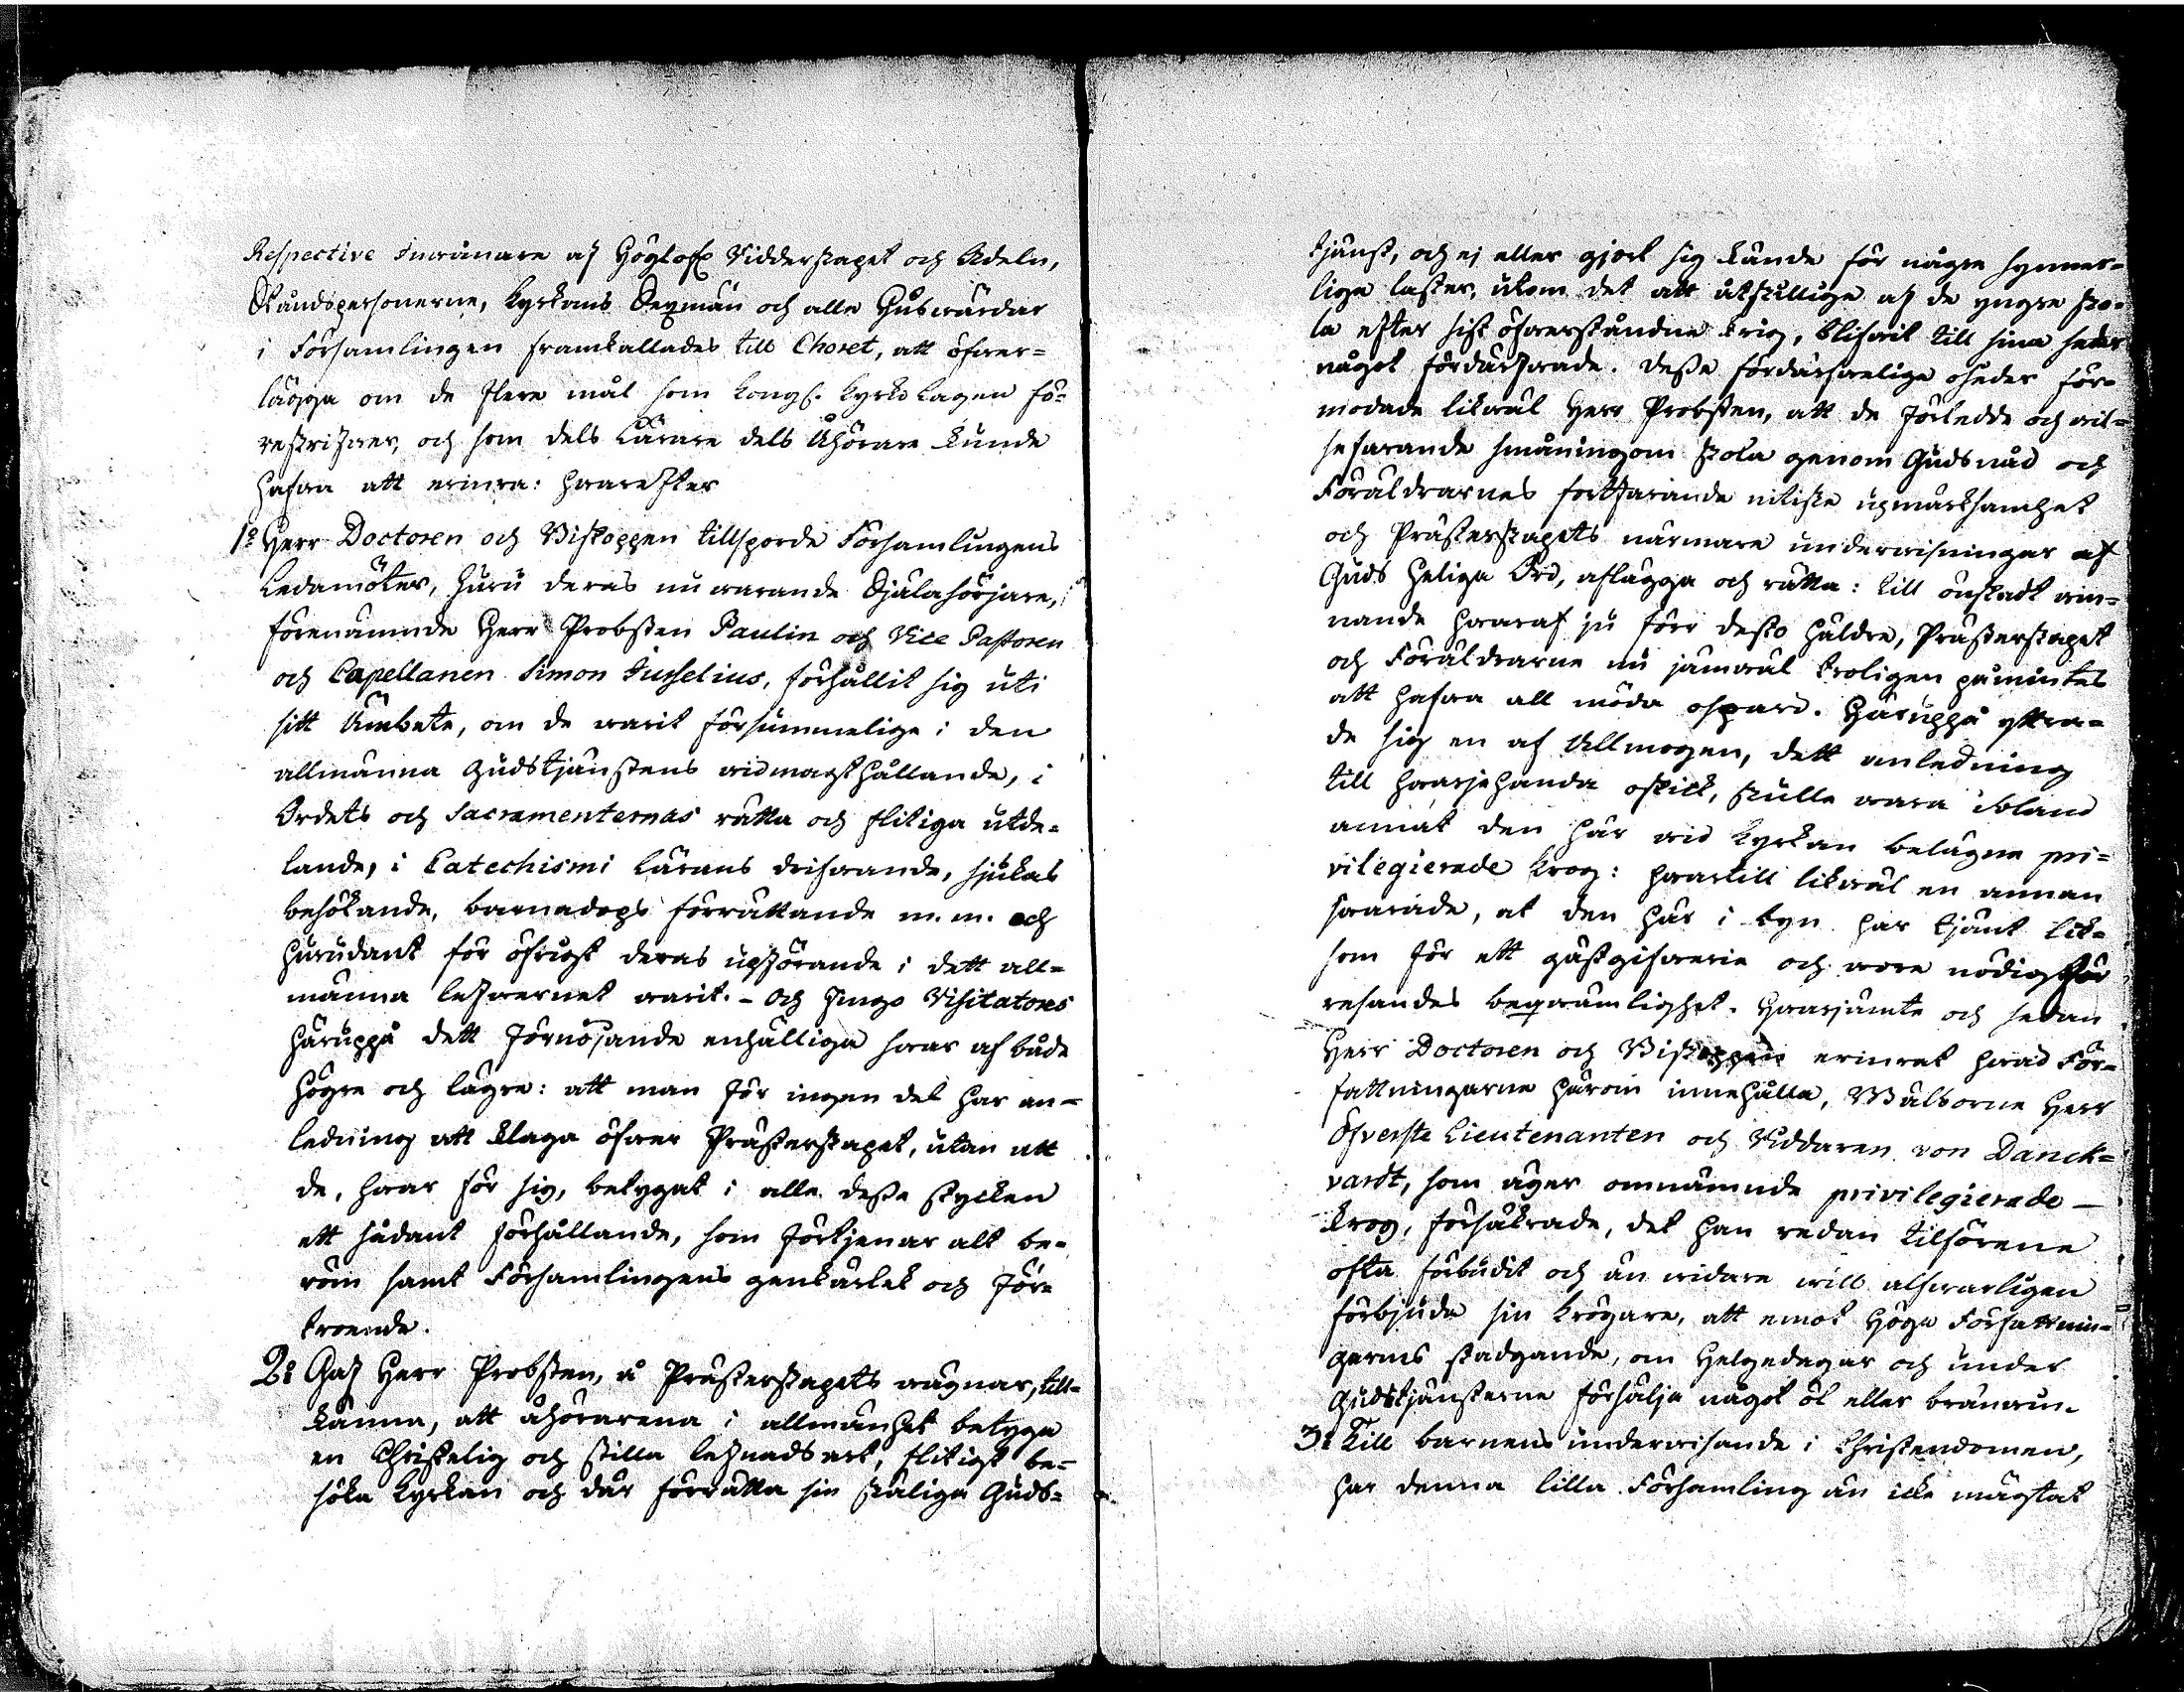 Respective Inwånare af Höglofl. Ridderskapet och Adeln,
Ståndspersonerne, kyrkans Sexmän och alle Huswärdar
i Församlingen framkallades till Choret, att öfwer-
lägga om de flere mål som Kongl. Kyrko Lagen fö-
reskrifwer, och som dels Lärare dels Åhörare kunde
hafwa att erinra: hwarefter
1º Herr Doctoren och Biskoppen tillsporde Församlingens
Ledamöter, huru deras nu warande Själasörjare,
förenämnde Herr Probsten Paulin och Vice Pastoren
och Capellanen Simon Jusselius, förhållit sig uti
sitt Ämbete, om de warit försummelige i den
allmänna Gudstjänstens widmagthållande, i
Ordets och Sacramenternas rätta och flitiga utde-
lande, i Catechismi Lärans drifwande, sjukas
besökande, barnadops förrättande m.m. och
hurudant för öfrigt deras upförande i dett all-
männa lefwernet warit. – Och Jngo Visitatores
häruppå dett förnöjande enhälliga swar af både
högre och lägre: att man för ingen del har an-
ledning att klaga öfwer Prästerskapet, utan att
de, hwar för sig, betygat i alla desse stycken
ett sådant förhållande, som förtjenar alt be-
röm samt Församlingens genkärlek och för-
troende.
2º Gaf Herr Probsten, å Prästerskapets wägnar, till-
känna, att åhörarena i allmänhet betyga
en Christelig och stilla lefnads art, flitigt be-
söka Kyrkan och där förrätta sin skäliga Guds-
tjänst, och ej eller gjort sig kände för någre synner-
liga laster, utom det att åtskillige af de yngre sko-
la efter sist öfwerståndne krig, blifwit till sina seder
något fördärfwade. Desse fördärfwelige oseder för-
modade likwäl Herr Probsten, att de förledde och wil-
sefarande småningom skola genom Guds nåd och
Föräldrarnes fortfarande nitiske upmärksamhet
och Prästerskapets närmare underwisningar af
Guds heliga Ord, aflägga och rätta: till önskadt win-
nande hwaraf ju förr desto häldre, Prästerskapet
och Föräldrarne nu jämwäl troligen påmintes
att hafwa all möda ospard. Häruppå yttra-
de sig en af Allmogen, dett anledning
till hwarjehanda oskick, skulle wara ibland
annat den här wid Kyrkan belägne pri-
vilegierade krog: hwartill likwäl en annan
swarade, at den här i byn har tjänt lik-
som för ett gästgifwerie och wore nödig för
resandes beqwämlighet. Hwarjämte och sedan
Herr Doctoren och Biskoppen erinrat hwad För-
fattningarne härom innehålla, Wälborne Herr
Öfverste Lieutenanten och Riddaren von Danck-
vardt, som äger omnämnde privilegierade –
krog, försäkrade, det han redan tilförene
ofta förbudit och än widare will alfwarligen
förbjuda sin krögare, att emot höga Författnin-
garnes stadgande, om Helgedagar och under
Gudstjänsterne försälja något öl eller bränwin.
3º Till barnens underwisande i Christendomen,
har denna lilla Församling än icke mägtat